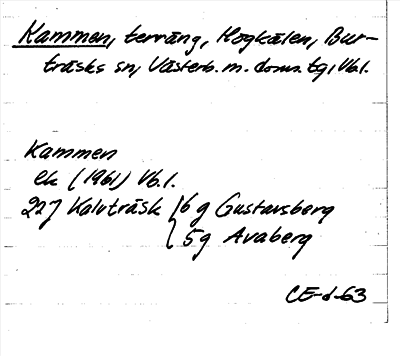 Kammen, terräng, Högkälen, Bur-
träsks sn, Västerb. m. doms. tg, Vb.l.
Kammen
ek (1961) Vb.l.
22J Kalvträsk { 6 g Gustavsberg
5g Avaberg
CE-d-63